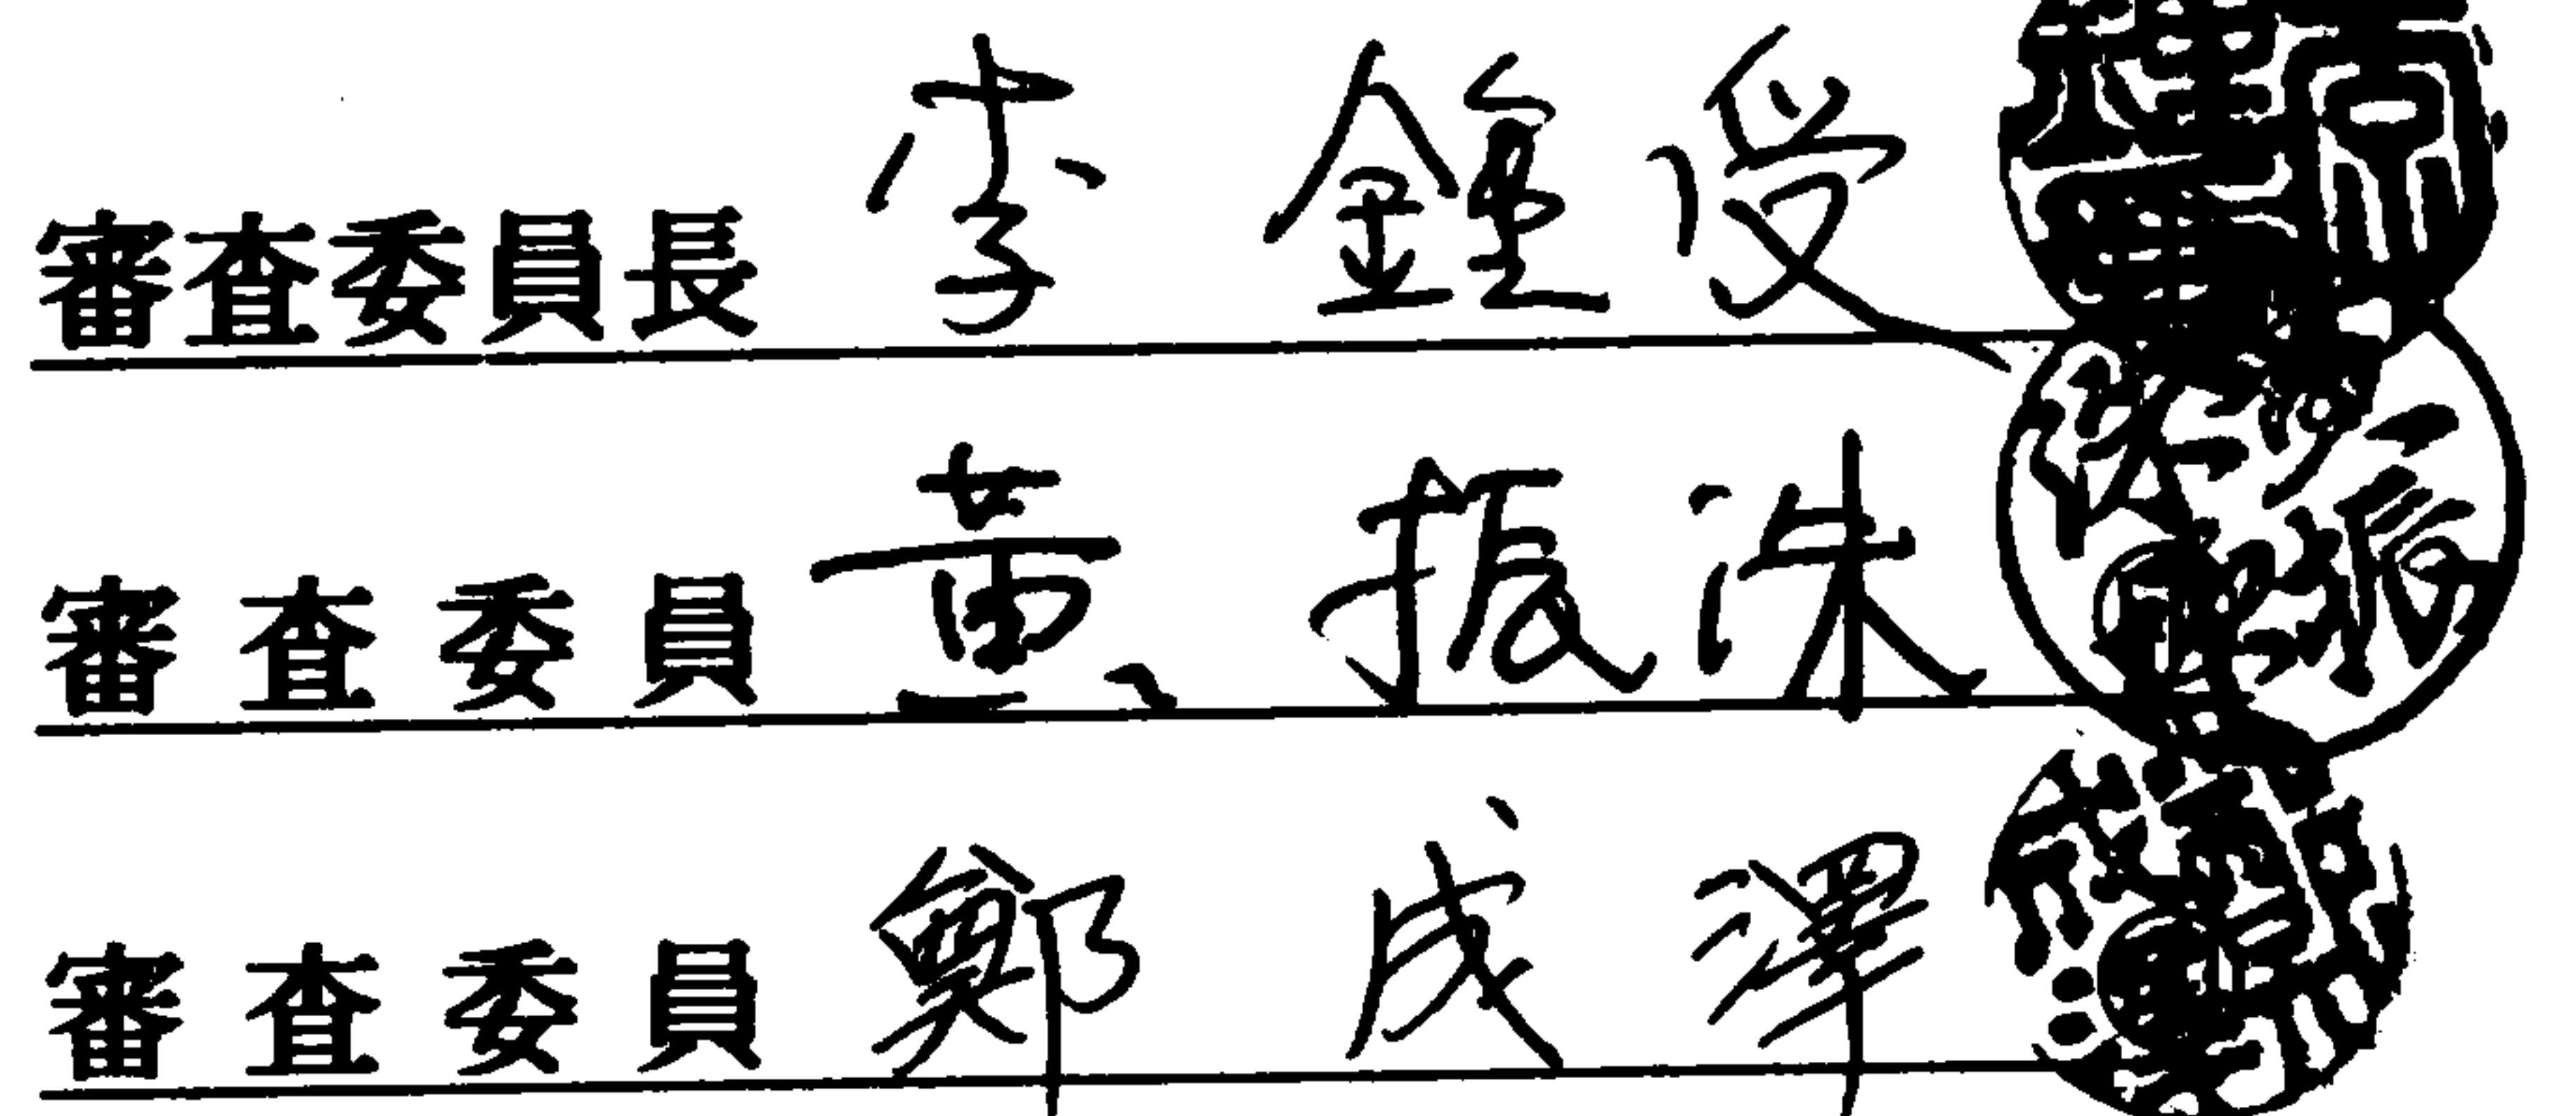 審查委員長 李 鍾 受
審查委員 黃 振 洙
審查委員 鄭 成 澤